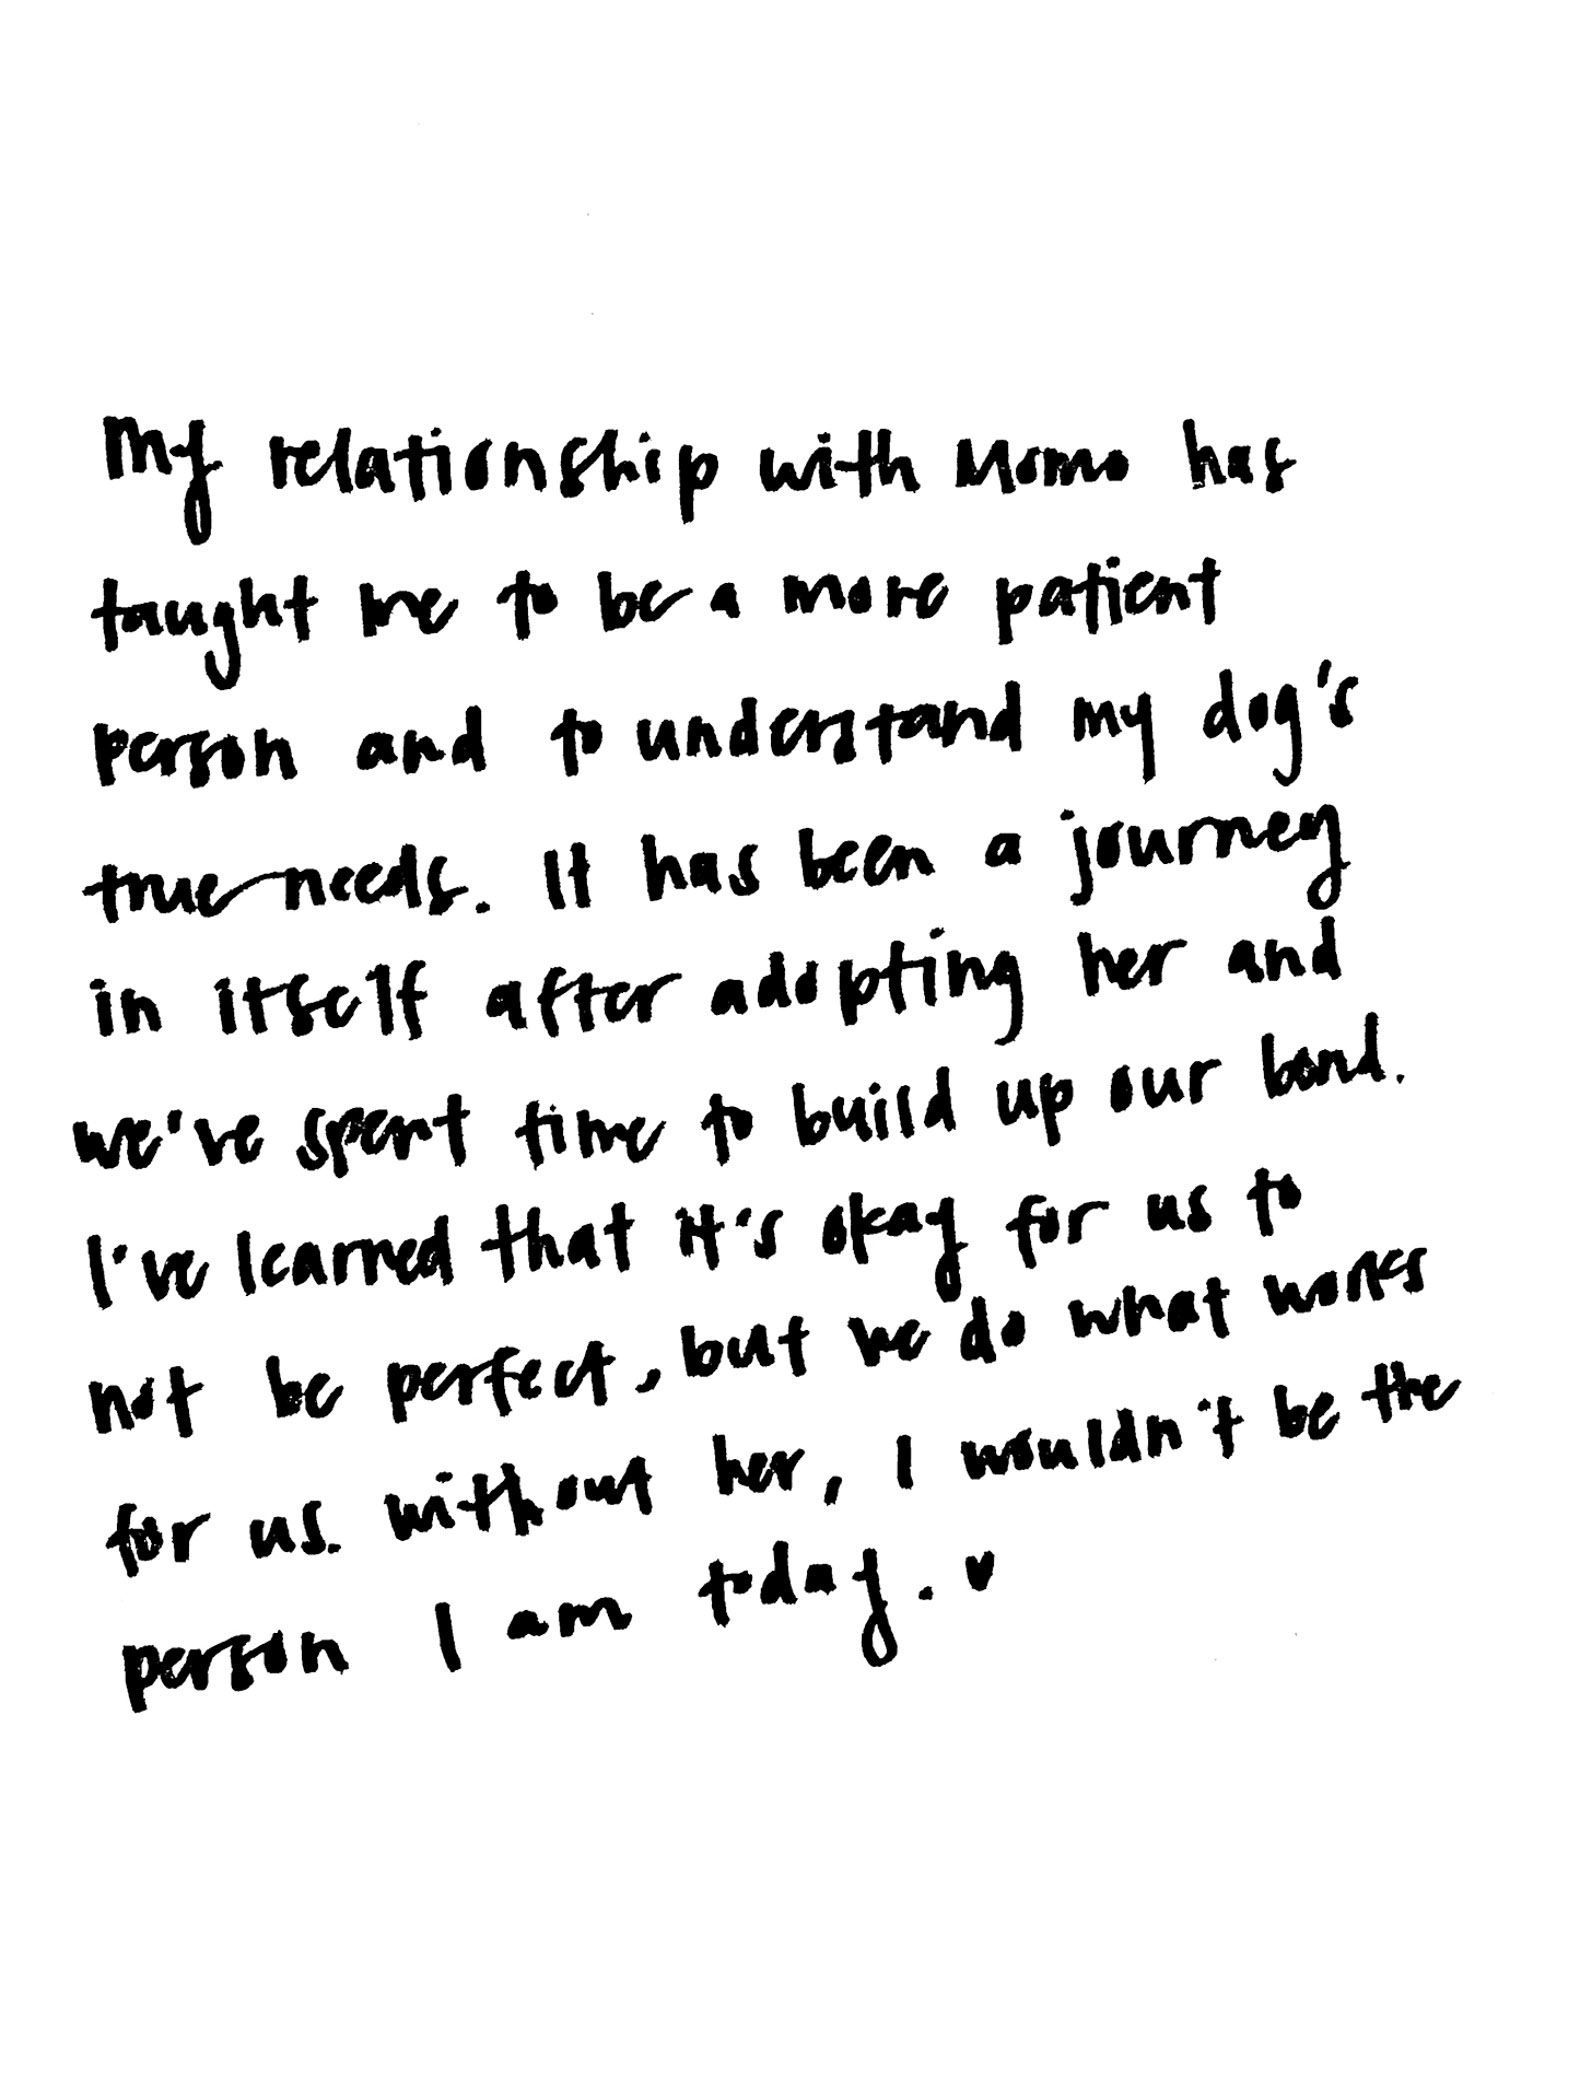 My relationship with Momo has
taught me to be a more patient
person and to understand my dog's
true needs. It has been a journey
in itself after adopting her and
we've spent time to build up our bond.
I've learned that it's okay for us to
not be perfect, but we do what works
for us. without her, I wouldn't be the
person I am today. ♥